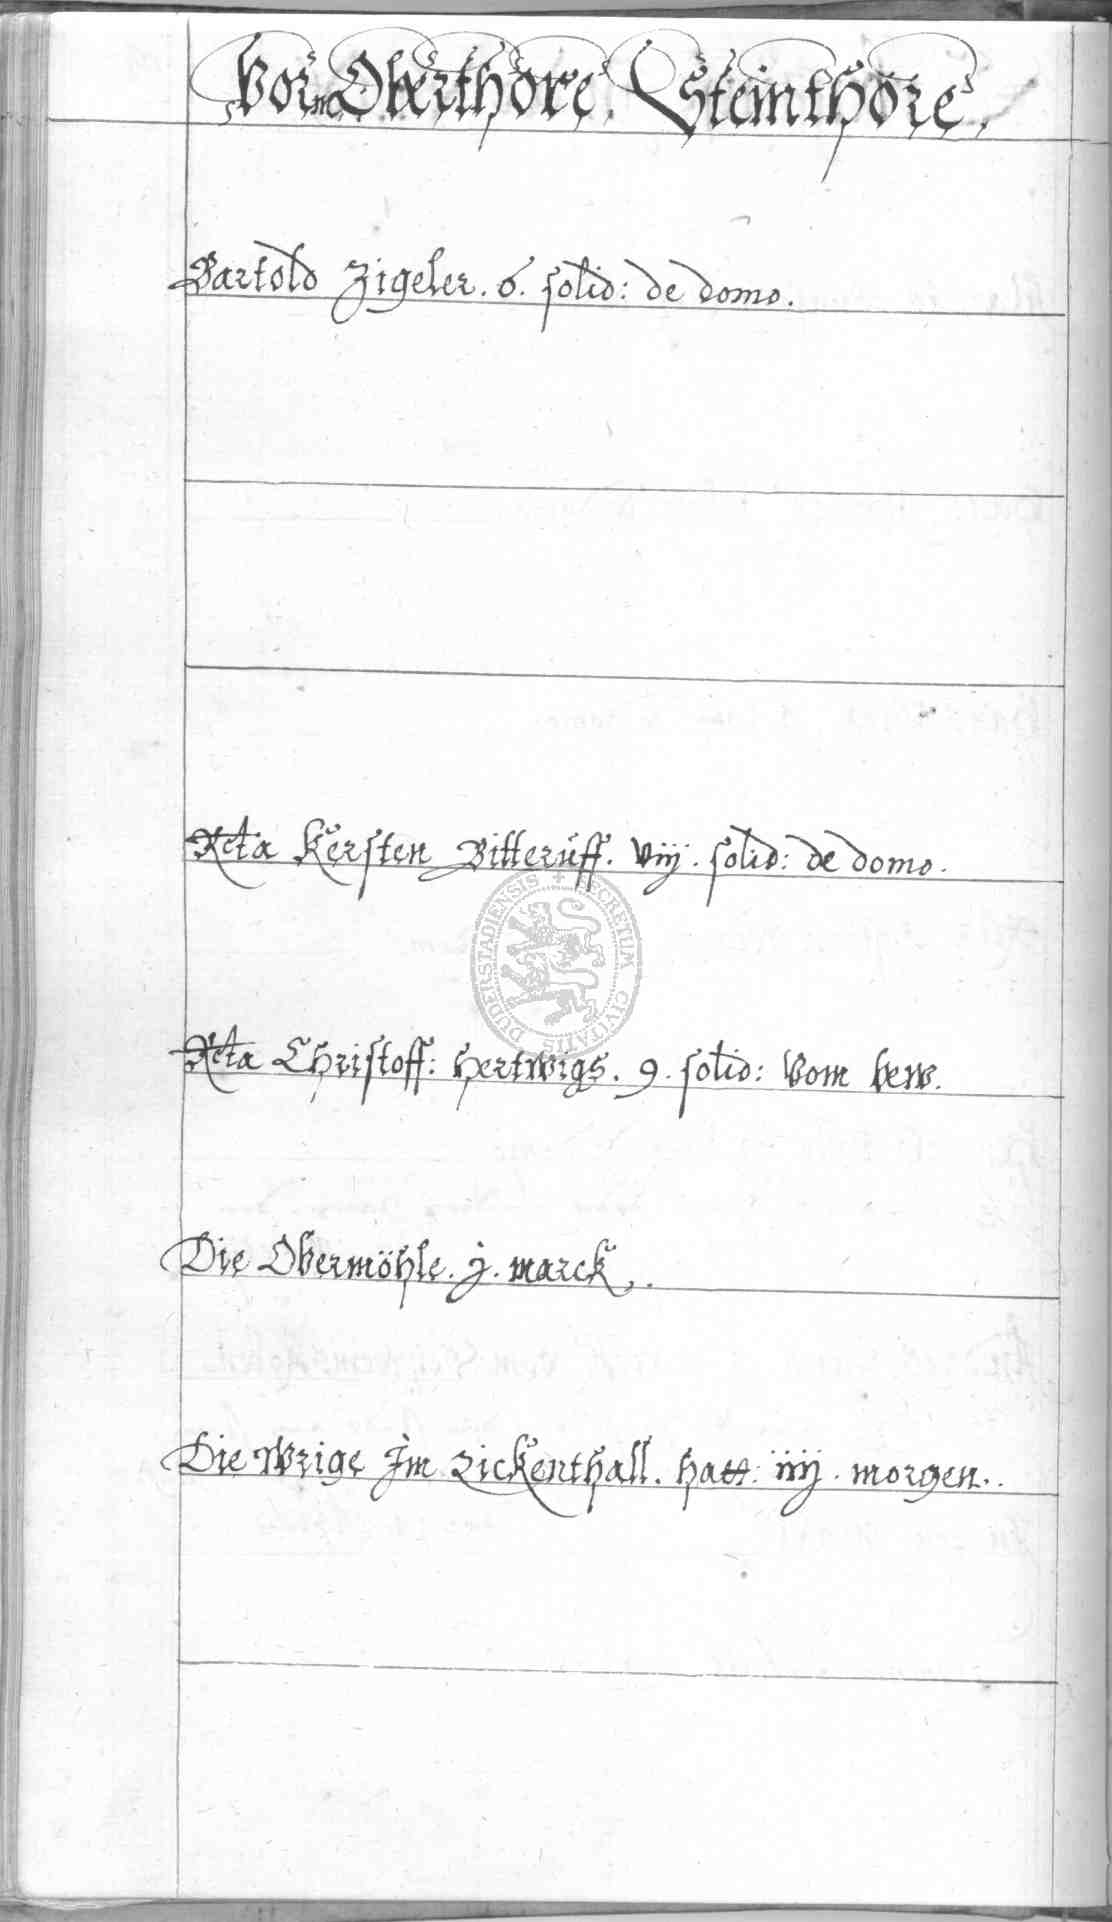 Vorm Oberthore, Steinthore,
Bartold Zigeler. 6. solid: de domo.
Rcta Kersten Bitteruff. viij. solid: de domo.
DUDERSTADIENSIS + SECRETUM CIVITATIS
Rcta Christoff: Hertwigs. 9. solid: Vom berw.
Die Obermöhle. j. marck.
Die Wrige Im Zickenthall. hatt: iiij. morgen..